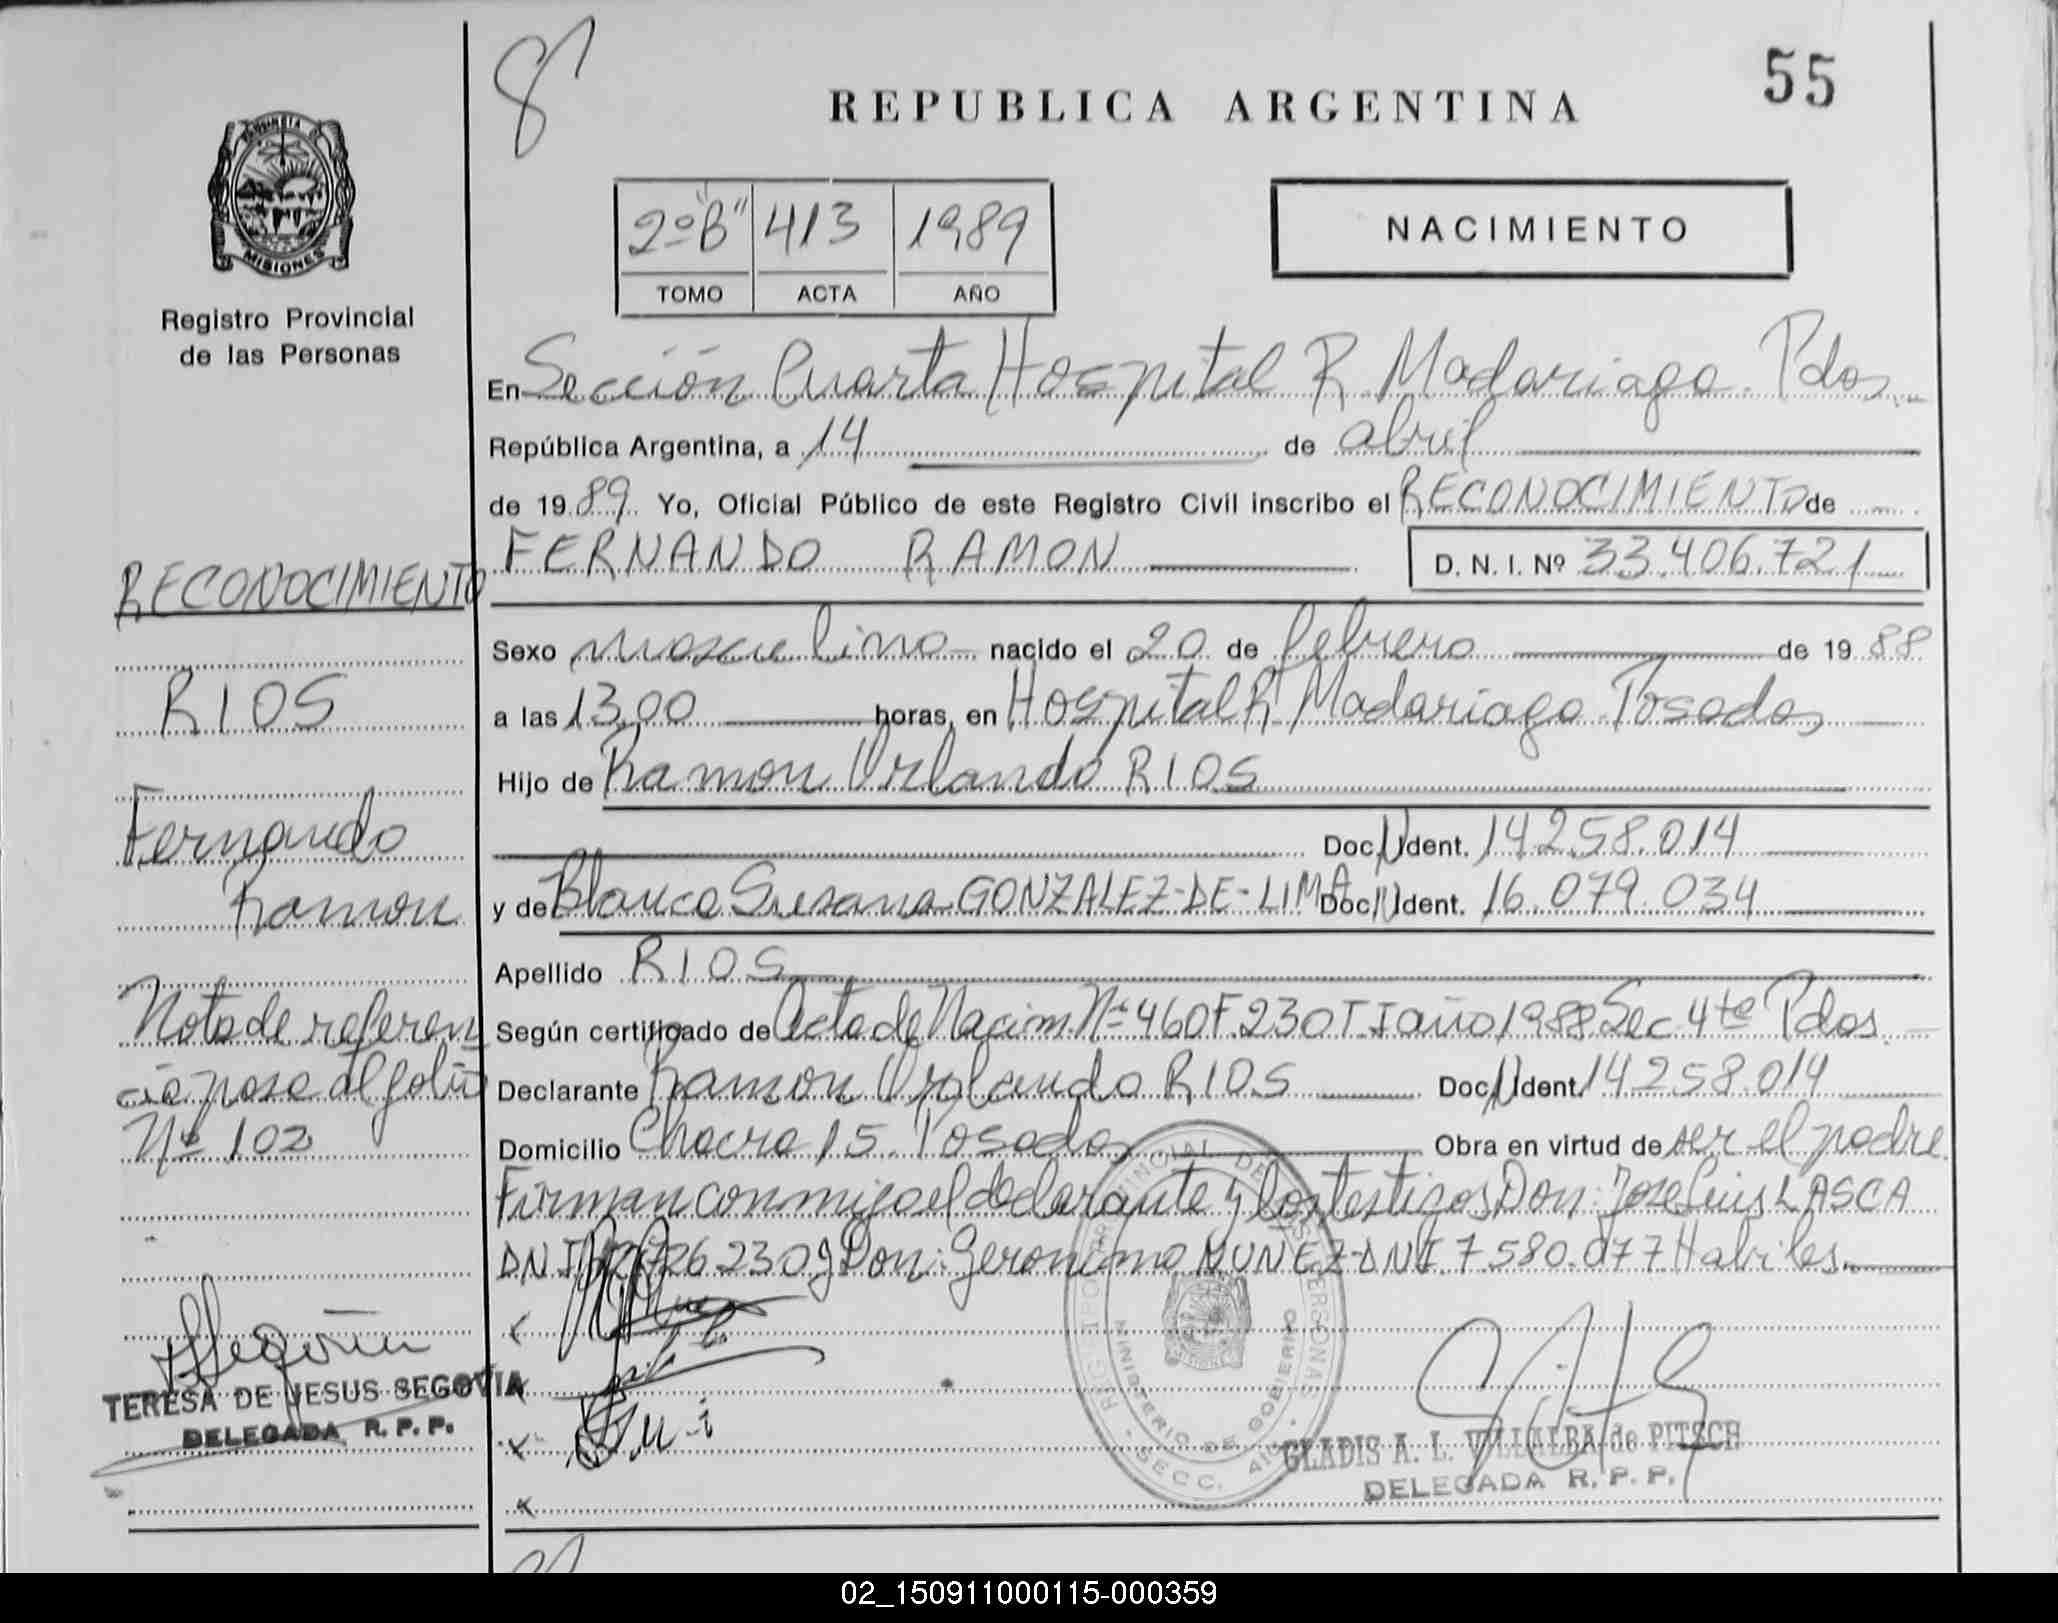 8
REPUBLICA ARGENTINA
55
PROVINCIA DE
MISIONES
Registro Provincial
de las Personas
2º"B" 413 1989
TOMO ACTA AÑO
NACIMIENTO
En Sección Cuarta Hospital R. Madariaga. Pdas.
República Argentina, a 14 de abril
de 1989. Yo, Oficial Público de este Registro Civil inscribo el RECONOCIMIENTO de
FERNANDO RAMON D. N. I. Nº 33.406.721
Sexo masculino nacido el 20 de febrero de 1988
a las 13,00 horas, en Hospital R. Madariaga Posadas
Hijo de Ramon Orlando RIOS
Doc. Ident. 14.258.014
y de Blanca Susana GONZALEZ-DE-LIMA Doc. Ident. 16.079.034
Apellido RIOS
Según certificado de Acta de Nacim. Nº 460 F. 230 T I año 1988 Sec 4ta Pdas.
Declarante Ramon Orlando RIOS Doc. Ident. 14.258.014
Domicilio Chacra 15. Posadas Obra en virtud de ser el padre.
Firman conmigo el declarante y los testigos Don: Jose Luis LASCA
DNI 726.230 y Don: Geronimo NUÑEZ-DNI. 7.580.077 Habiles.
RECONOCIMIENTO
RIOS
Fernando
Ramon
Nota de referen
cia pasa al folio
Nº 102
TERESA DE JESUS SEGOVIA
DELEGADA R. P. P.
REG. PROVINCIAL DE LAS PERSONAS
MINISTERIO DE GOBIERNO
SECC. 4ta
GLADIS A. L. VILLALBA de PITSCH
DELEGADA R. P. P.
02_150911000115-000359